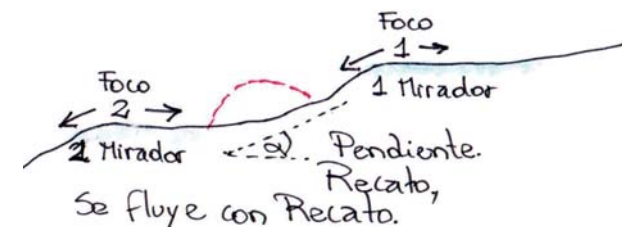 Foco
1
1 Mirador
Foco
2
2 Mirador
α
Pendiente.
Recato,
Se fluye con Recato.